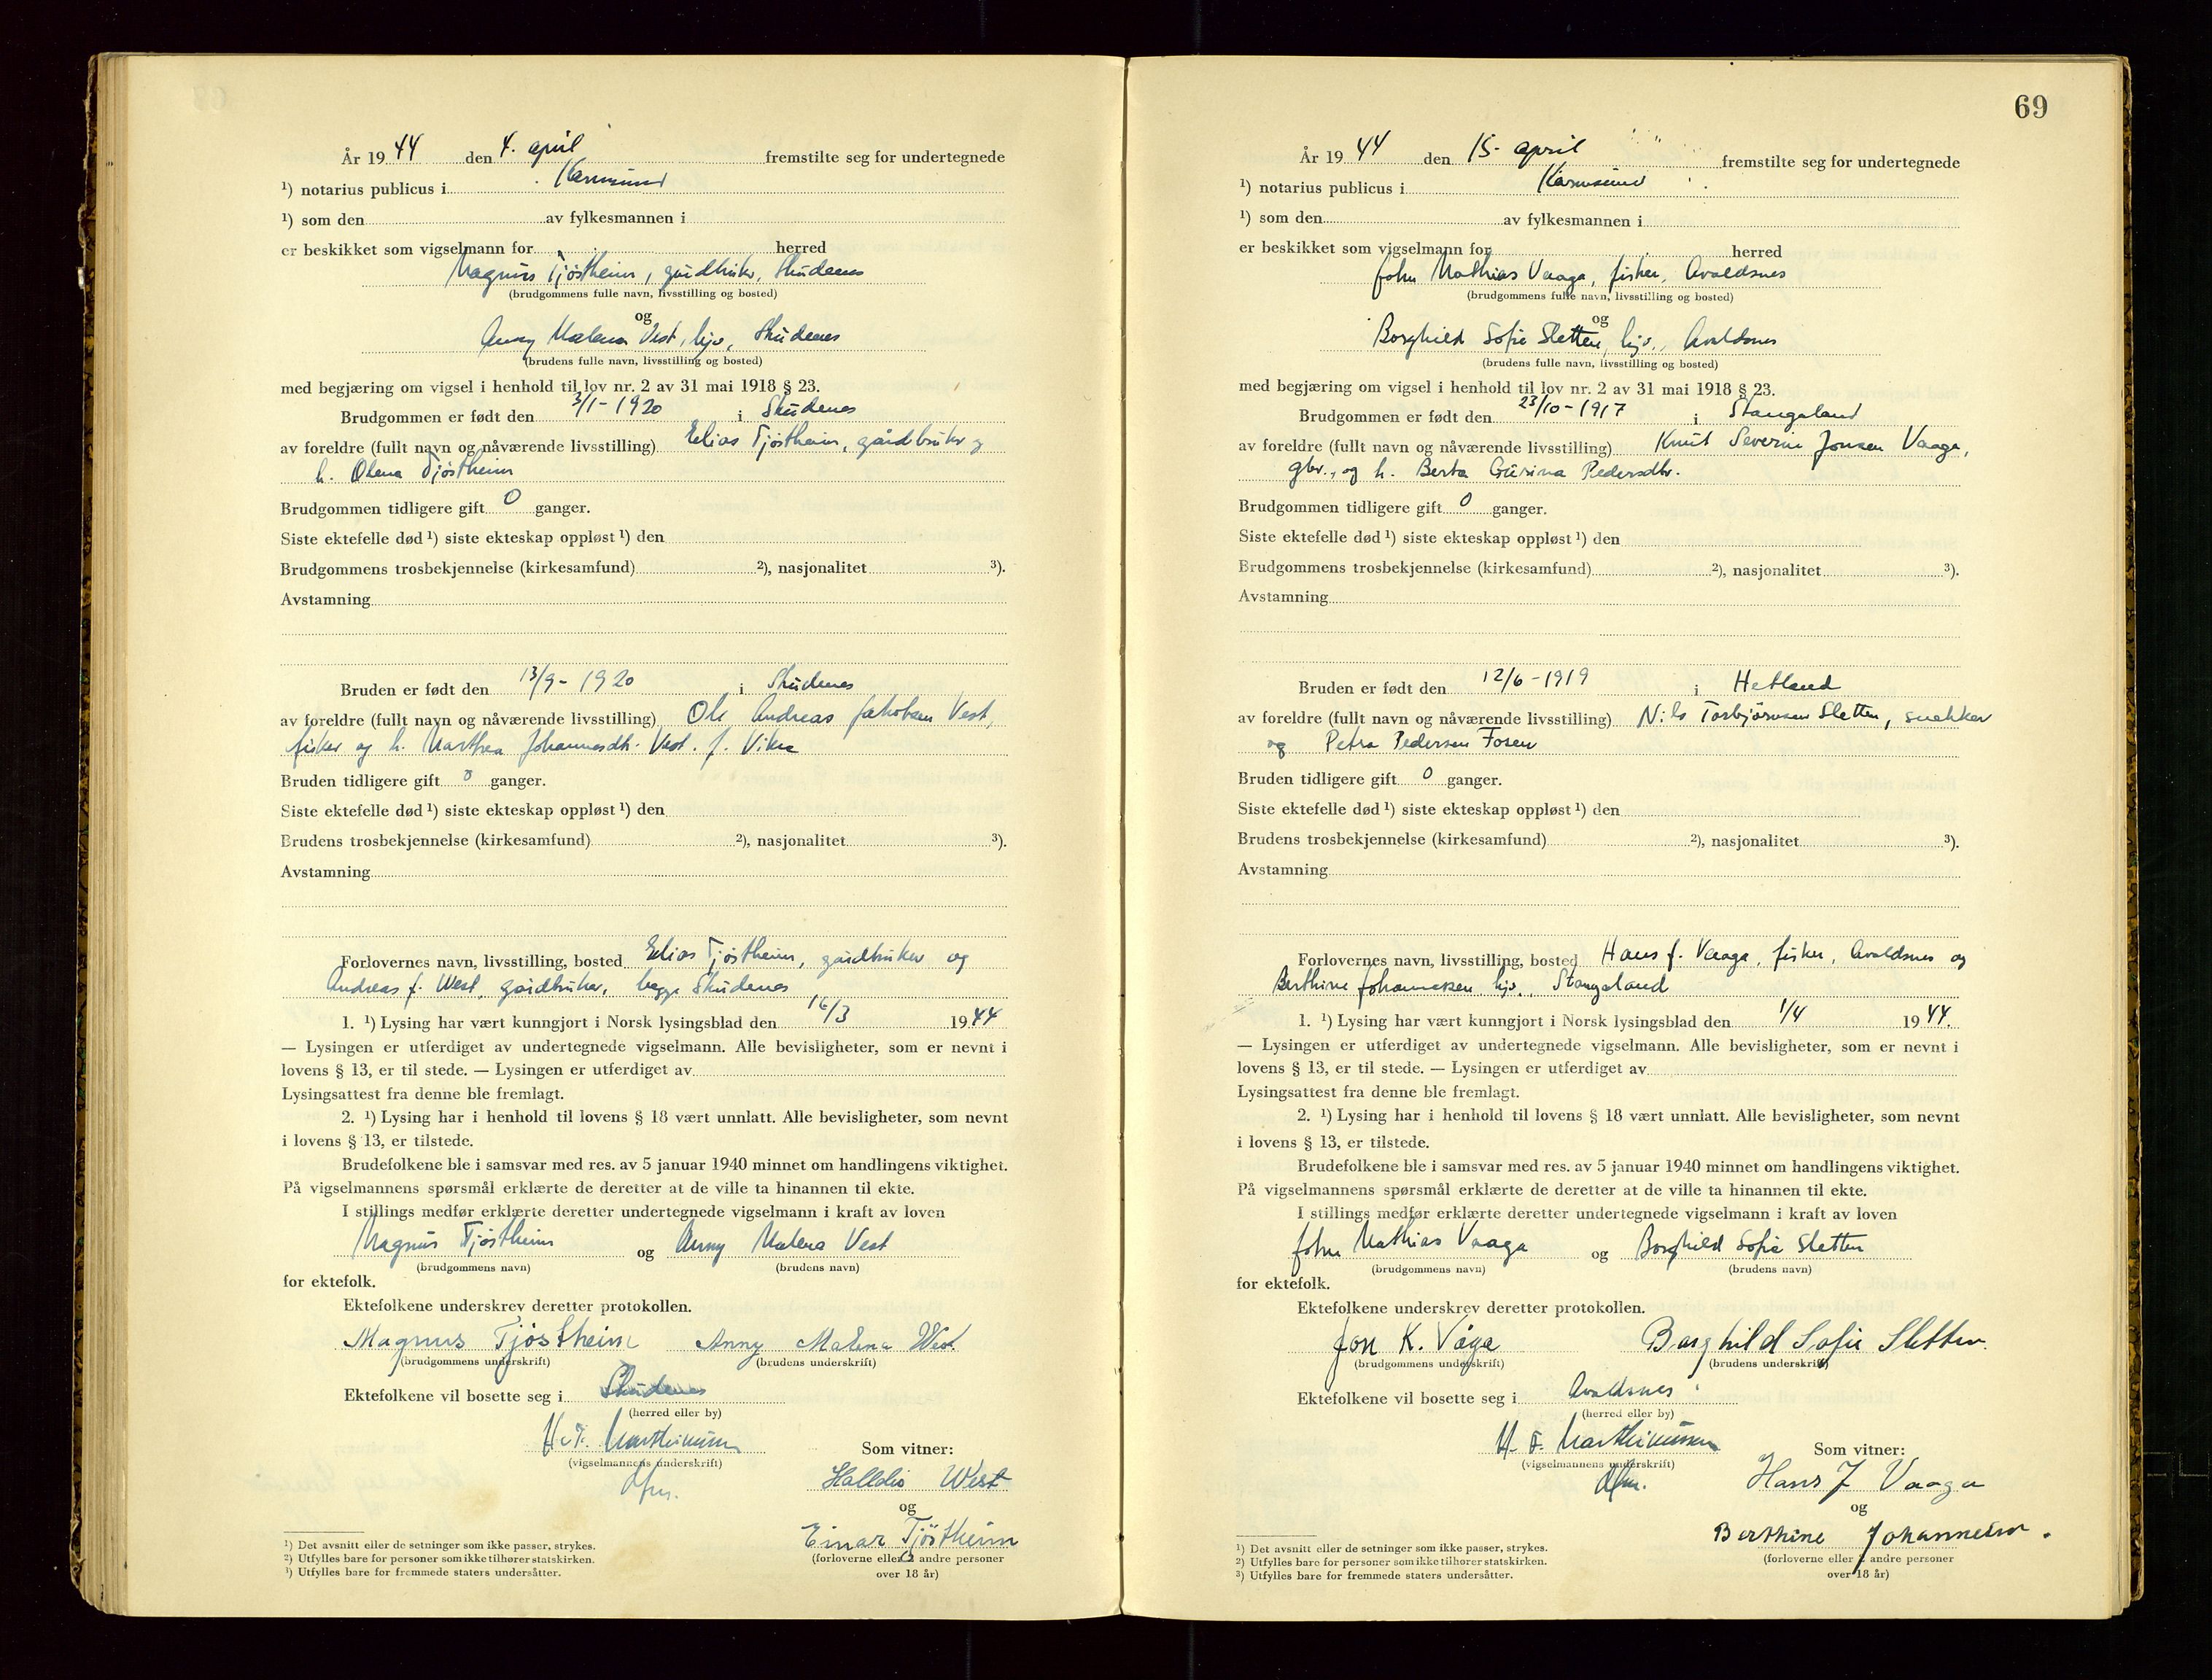 År 1944 den 4. april fremstilte seg for undertegnede
¹) notarius publicus i Karmsund
¹) som den av fylkesmannen i
er beskikket som vigselmann for herred
Magnus Tjøstheim, gårdbruker, Skudenes
(brudgommens fulle navn, livsstilling og bosted)
og
Anny Malena Vest, hjv., Skudenes
(brudens fulle navn, livsstilling og bosted)
med begjæring om vigsel i henhold til lov nr. 2 av 31 mai 1918 § 23.
Brudgommen er født den 3/1-1920 i Skudenes
av foreldre (fullt navn og nåværende livsstilling) Elias Tjøstheim, gårdbruker og
h. Olena Tjøstheim
Brudgommen tidligere gift 0 ganger.
Siste ektefelle død ¹) siste ekteskap oppløst ¹) den
Brudgommens trosbekjennelse (kirkesamfund) ²), nasjonalitet ³).
Avstamning
Bruden er født den 13/9-1920 i Skudenes
av foreldre (fullt navn og nåværende livsstilling) Ole Andreas Jakobsen Vest,
fisker og h. Marthea Johannesdtr. Vest. f. Vikra
Bruden tidligere gift 0 ganger.
Siste ektefelle død ¹) siste ekteskap oppløst ¹) den
Brudens trosbekjennelse (kirkesamfund) ²), nasjonalitet ³).
Avstamning
Forlovernes navn, livsstilling, bosted Elias Tjøstheim, gårdbruker og
Andreas J. West, gårdbruker, begge Skudenes
1. ¹) Lysing har vært kunngjort i Norsk lysingsblad den 16/3 1944
— Lysingen er utferdiget av undertegnede vigselmann. Alle bevisligheter, som er nevnt i
lovens § 13, er til stede. — Lysingen er utferdiget av
Lysingsattest fra denne ble fremlagt.
2. ¹) Lysing har i henhold til lovens § 18 vært unnlatt. Alle bevisligheter, som nevnt
i lovens § 13, er tilstede.
Brudefolkene ble i samsvar med res. av 5 januar 1940 minnet om handlingens viktighet.
På vigselmannens spørsmål erklærte de deretter at de ville ta hinannen til ekte.
I stillings medfør erklærte deretter undertegnede vigselmann i kraft av loven
Magnus Tjøstheim og Anny Malena Vest
(brudgommens navn) (brudens navn)
for ektefolk.
Ektefolkene underskrev deretter protokollen.
Magnus Tjöstheim Anny Malena West
(brudgommens underskrift) (brudens underskrift)
Ektefolkene vil bosette seg i Skudenes
(herred eller by)
H. F. Marthinussen
(vigselmannens underskrift)
Som vitner:
Halldis West
og
Einar Tjöstheim
(forloverne eller 2 andre personer
over 18 år)
¹) Det avsnitt eller de setninger som ikke passer, strykes.
²) Utfylles bare for personer som ikke tilhører statskirken.
³) Utfylles bare for fremmede staters undersåtter.
69
År 1944 den 15. april fremstilte seg for undertegnede
¹) notarius publicus i Karmsund
¹) som den av fylkesmannen i
er beskikket som vigselmann for herred
John Mathias Vaaga, fisker, Avaldsnes
(brudgommens fulle navn, livsstilling og bosted)
og
Borghild Sofie Sletten, hjv., Avaldsnes
(brudens fulle navn, livsstilling og bosted)
med begjæring om vigsel i henhold til lov nr. 2 av 31 mai 1918 § 23.
Brudgommen er født den 23/10-1917 i Stangaland
av foreldre (fullt navn og nåværende livsstilling) Knut Severin Jonsen Vaaga,
gbr., og h. Berta Gurina Pedersdtr.
Brudgommen tidligere gift 0 ganger.
Siste ektefelle død ¹) siste ekteskap oppløst ¹) den
Brudgommens trosbekjennelse (kirkesamfund) ²), nasjonalitet ³).
Avstamning
Bruden er født den 12/6-1919 i Hetland
av foreldre (fullt navn og nåværende livsstilling) Nils Torbjørnsen Sletten, snekker
og Petra Pedersen Fosen
Bruden tidligere gift 0 ganger.
Siste ektefelle død ¹) siste ekteskap oppløst ¹) den
Brudens trosbekjennelse (kirkesamfund) ²), nasjonalitet ³).
Avstamning
Forlovernes navn, livsstilling, bosted Hans J. Vaaga, fisker, Avaldsnes og
Berthine Johannesen, hjv., Stangaland
1. ¹) Lysing har vært kunngjort i Norsk lysingsblad den 1/4 1944.
— Lysingen er utferdiget av undertegnede vigselmann. Alle bevisligheter, som er nevnt i
lovens § 13, er til stede. — Lysingen er utferdiget av
Lysingsattest fra denne ble fremlagt.
2. ¹) Lysing har i henhold til lovens § 18 vært unnlatt. Alle bevisligheter, som nevnt
i lovens § 13, er tilstede.
Brudefolkene ble i samsvar med res. av 5 januar 1940 minnet om handlingens viktighet.
På vigselmannens spørsmål erklærte de deretter at de ville ta hinannen til ekte.
I stillings medfør erklærte deretter undertegnede vigselmann i kraft av loven
John Mathias Vaaga og Borghild Sofie Sletten
(brudgommens navn) (brudens navn)
for ektefolk.
Ektefolkene underskrev deretter protokollen.
Jon K. Våga Borghild Sofie Sletten.
(brudgommens underskrift) (brudens underskrift)
Ektefolkene vil bosette seg i Avaldsnes
(herred eller by)
H. F. Marthinussen
(vigselmannens underskrift)
Som vitner:
Hans J Vaaga
og
Berthine Johannesen.
(forloverne eller 2 andre personer
over 18 år)
¹) Det avsnitt eller de setninger som ikke passer, strykes.
²) Utfylles bare for personer som ikke tilhører statskirken.
³) Utfylles bare for fremmede staters undersåtter.